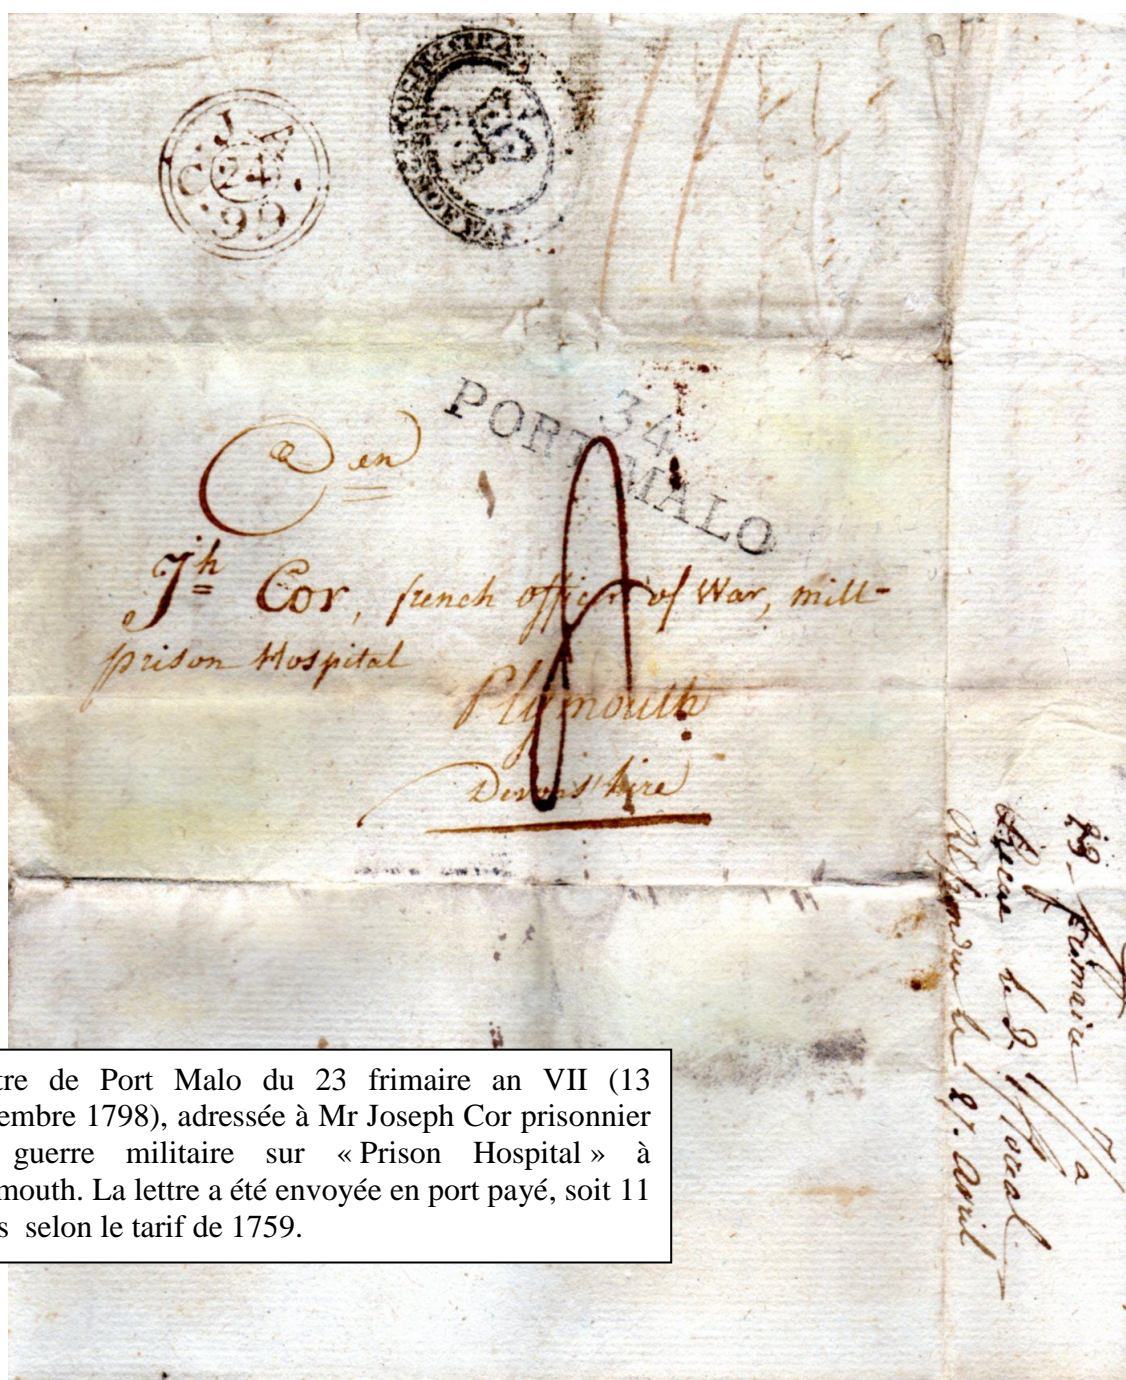 J A
C 24
99
34
PORT MALO
Cen
Jh Cor, french officer of War, mill-
prison Hospital
Plymouth
Devonshire
23 frimaire a 7
Recue le 2 floreal
Répondue le 27. Avril
tre de Port Malo du 23 frimaire an VII (13
embre 1798), adressée à Mr Joseph Cor prisonnier
guerre militaire sur « Prison Hospital » à
mouth. La lettre a été envoyée en port payé, soit 11
s selon le tarif de 1759.